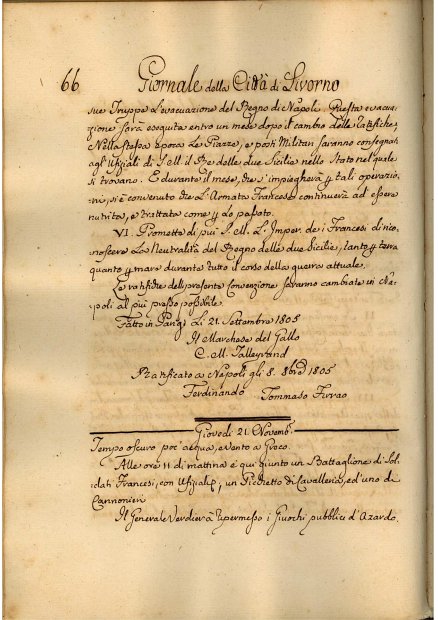 66 Giornale della Città di Livorno
sue Truppe l'evacuazione del Regno di Napoli. Questa evacua-
zione sarà eseguita entro un mese dopo il cambio delle ratifiche,
Nella stessa epoca Le Piazze, e posti Militari saranno consegnati
agl'Ufiziali di S. M. il Re delle due Sicilie nello Stato nel quale
si trovano. E durante il mese, che s'impiegherà p tali operazio-
ni, si è convenuto che L'Armata Francese continuerà ad essere
nutrita, e trattata come p Lo passato.
VI. Promette di più S. M. L'Imper. de i Francesi di rico-
noscere La Neutralità del Regno delle due Sicilie, tanto p terra
quanto p mare durante tutto il corso della guerra attuale.
Le ratifiche della presente Convenzione saranno cambiate in Na-
poli al più presto possibile.
Fatto in Parigi Li 21. Settembre 1805
Il Marchese del Gallo
C. M. Talleyrand
Ratificato a Napoli gli 8. 8bre 1805
Ferdinando Tommaso Firrao
Giovedì 21. Novemb.
Tempo oscuro poc'acqua, e vento a Greco.
Alle ore 11 di mattina è qui giunto un Battaglione di Sol-
dati Francesi, con un Picchetto di Cavalleria, ed uno di
Cannonieri
Il Generale Verdier à permesso i Giuochi pubblici d'Azardo.